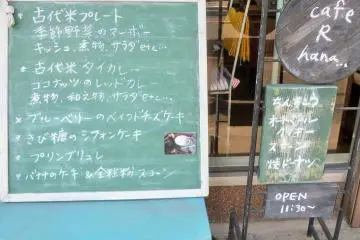 古代米プレート
季節野菜のマーボー
キッシュ、煮物、サラダ etc...
古代米タイカレー
ココナッツのレッドカレー
煮物、和え物、サラダ etc...
ブルーベリーのベイクドチーズケーキ
きび糖のシフォンケーキ
プリンブリュレ
バナナのケーキ & 全粒粉スコーン
cafe
R
hana...
オードブル
クッキー
スコーン
焼ドーナツ
OPEN
11:30~